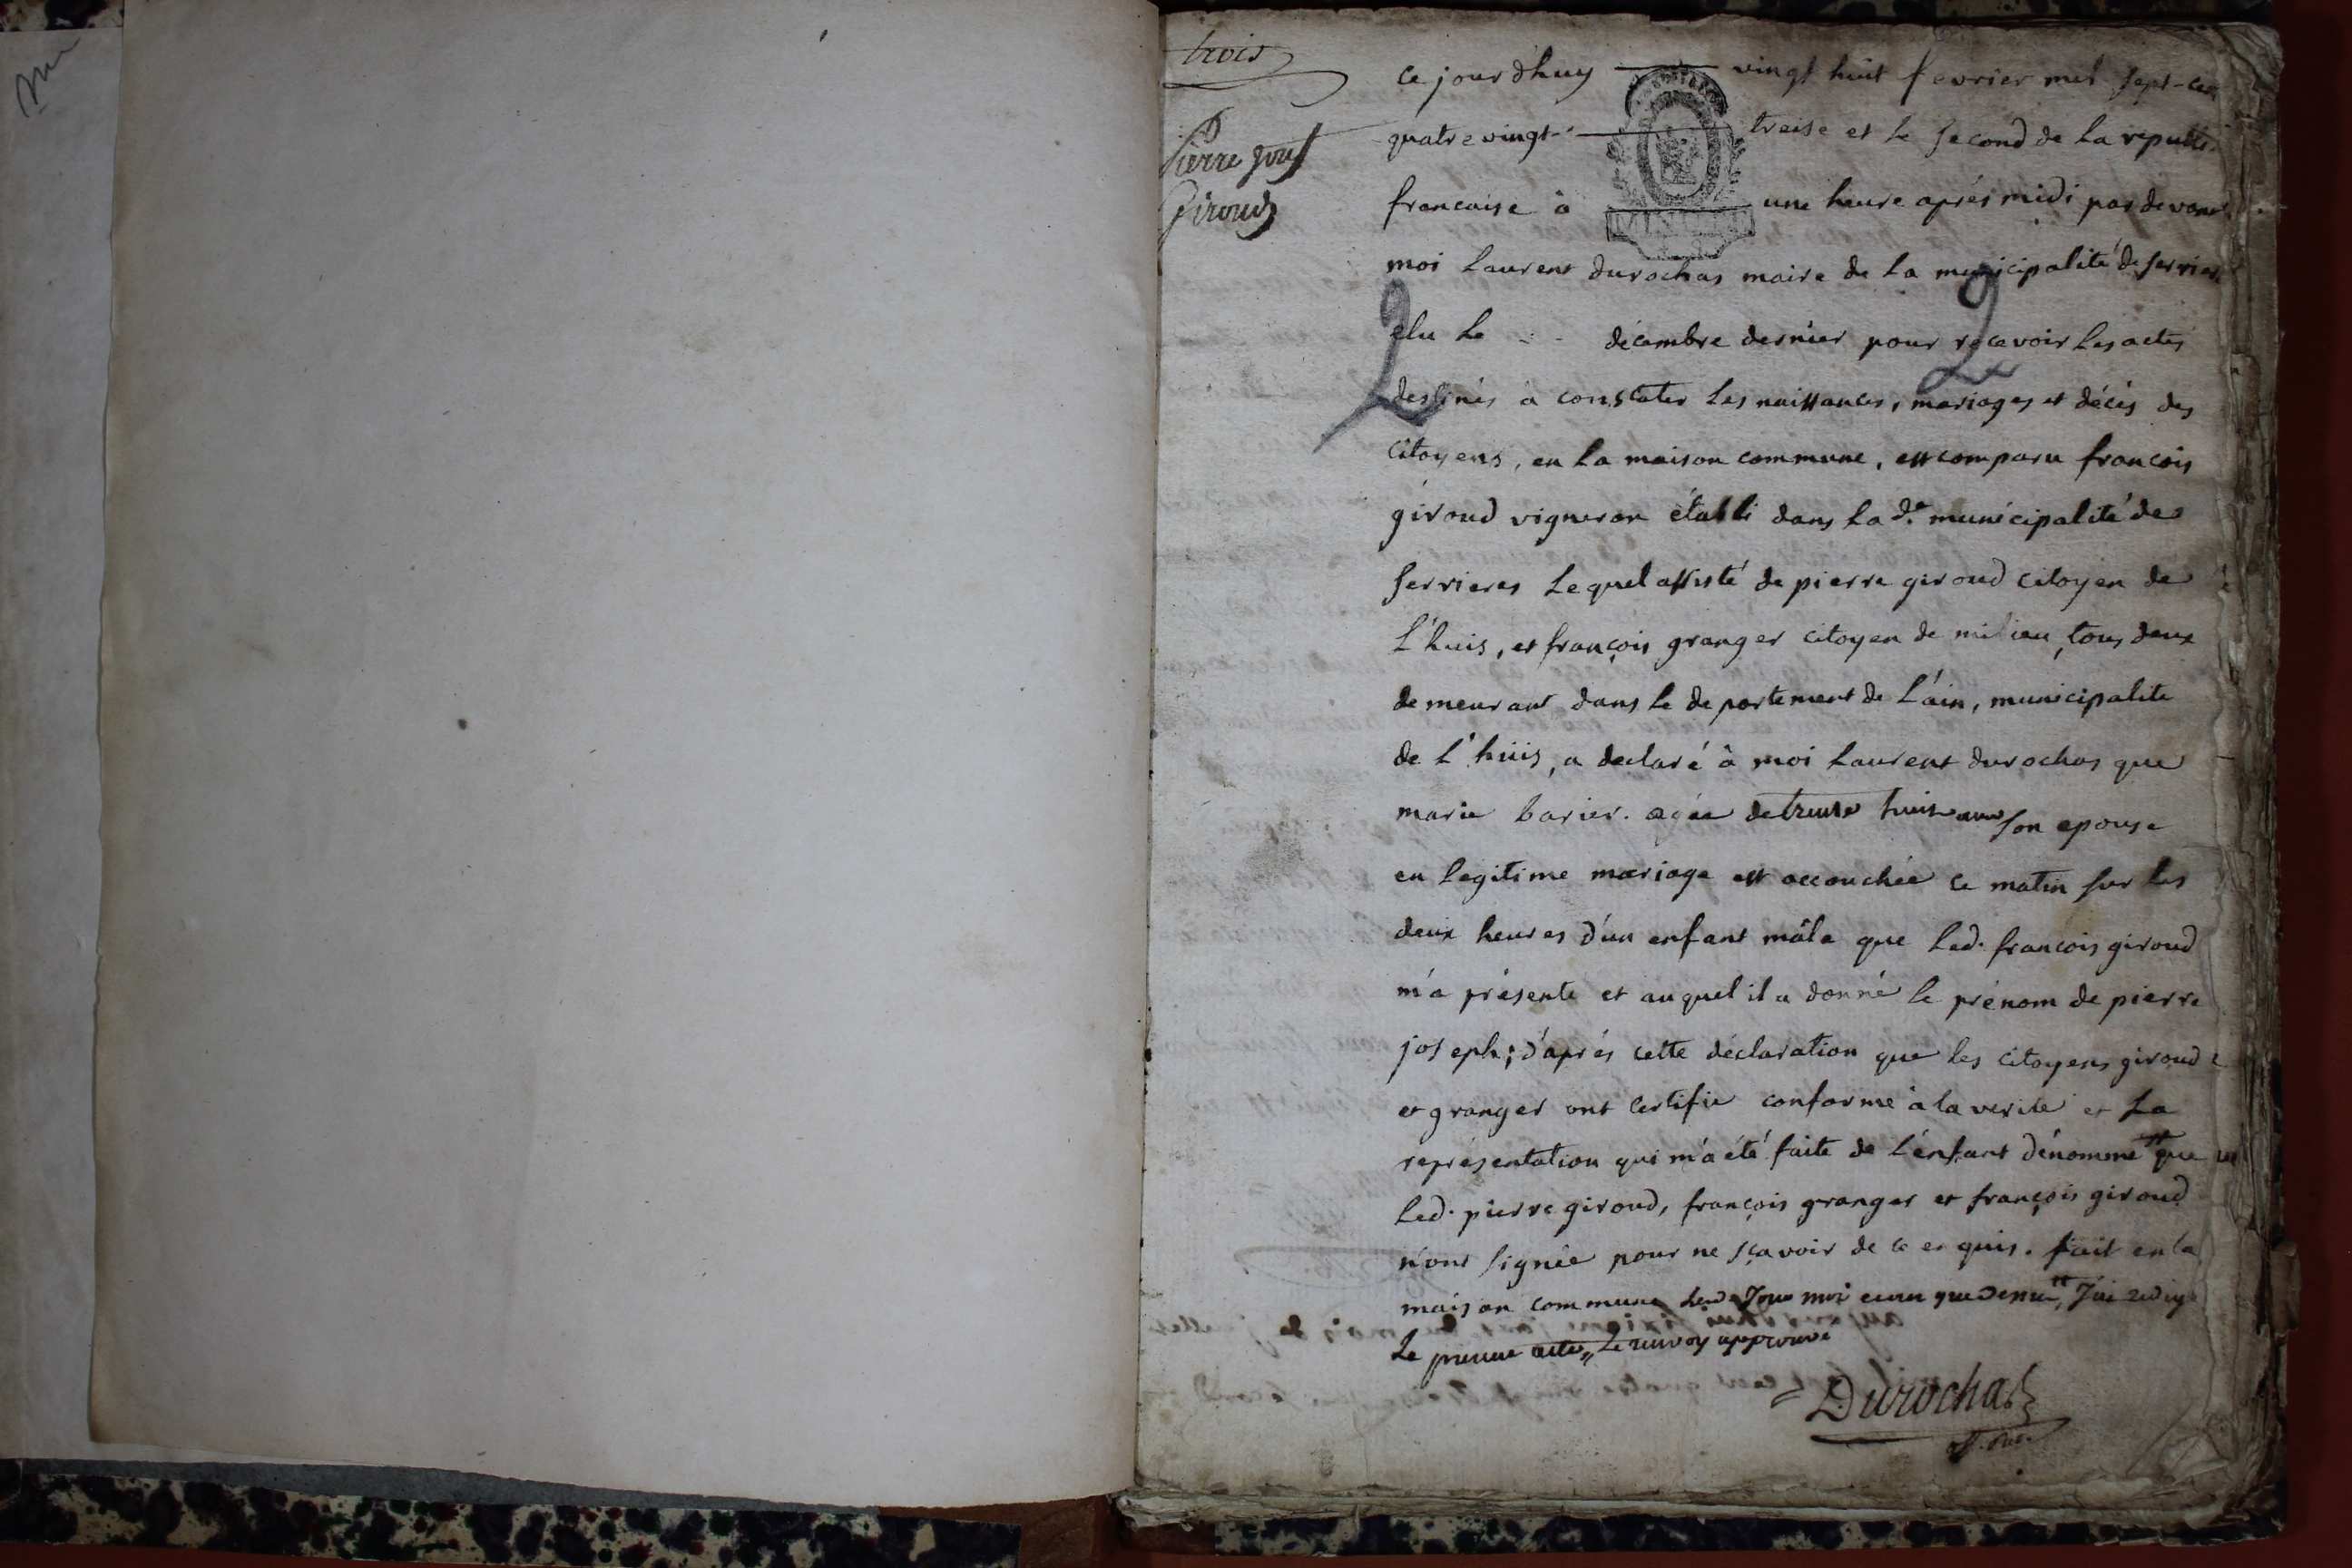 trois
Pierre jos
Giroud
ce jourd'huy vingt huit fevrier mil sept-cen
quatre vingt- treise et le second de la republi
francaise à une heure aprés midi par devant
moi Laurent durochas maire de la municipalité de serrier
elu le décembre dernier pour recevoir les actes
destinés à constater les naissances, mariages et décés des
citoyens, en la maison commune, est comparu francois
giroud vigneron établi dans la de. municipalité de
serrieres lequel assisté de pierre giroud citoyen de
l'huis, et françois granger citoyen de milieu, tous deux
demeurant dans le departement de l'ain, municipalite
de l'huis, a declaré à moi laurent durochas que
marie barier. agée de trente huit ans son epouse
en legitime mariage est accouchée ce matin sur les
deux heures d'un enfant mâle que led. francois giroud
m'a présenté et auquel il a donné le prénom de pierre
joseph; d'aprés cette déclaration que les citoyens giroud
et granger ont certifie conforme à la verité et la
représentation qui m'a été faite de l'enfant dénommé que
led. pierre giroud, françois granger et françois giroud
n'ont signée pour ne sçavoir de ce enquis. fait en la
maison commune J'ai redigé
Le acte, Le renvoy approuvé
Durochas